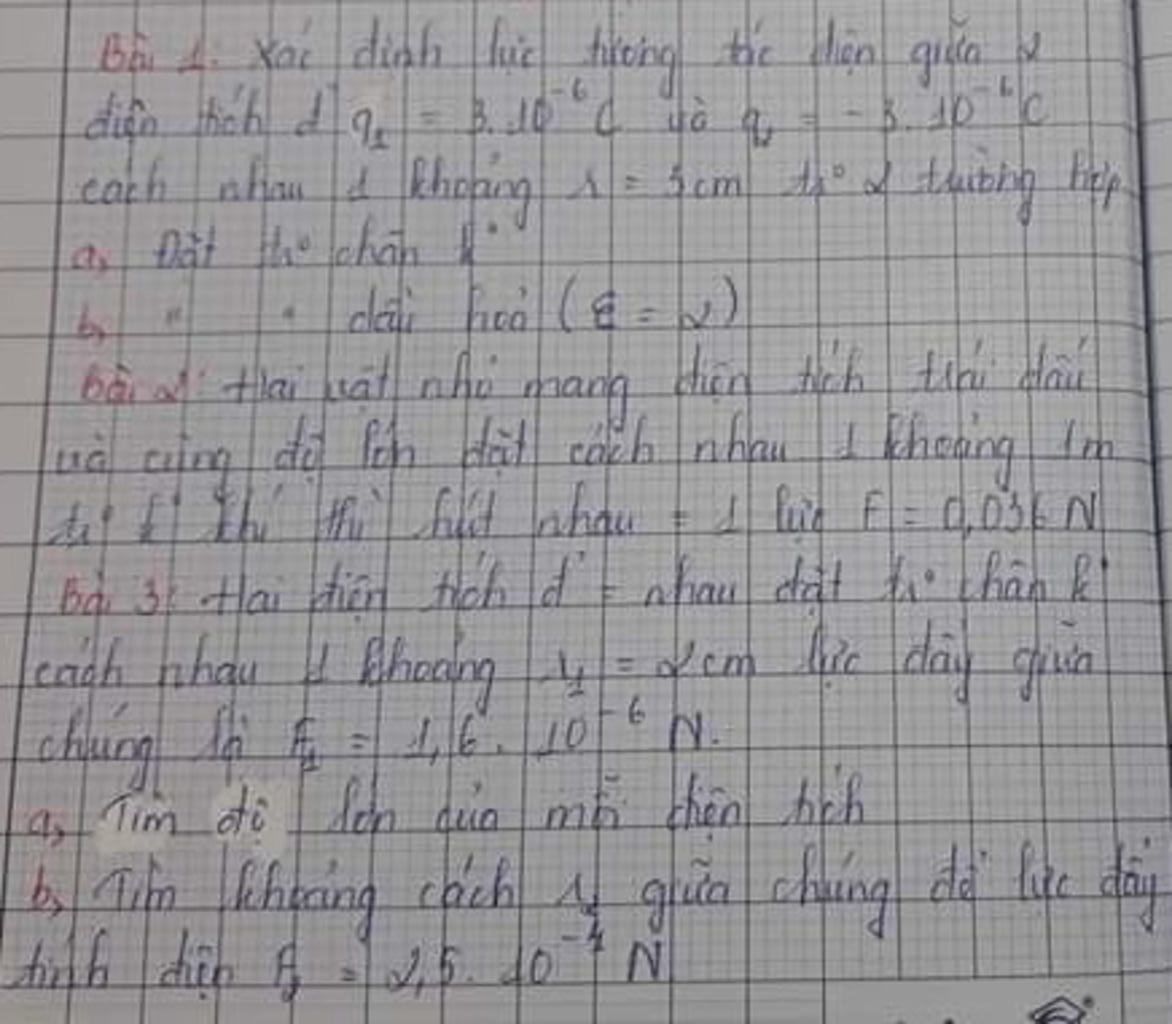 Bài 1. Xác định lực tương tác điện giữa 2
điện tích đ' q₁ = 3.10⁻⁶ C và q₂ = -3.10⁻⁶ C
cách nhau 1 khoảng r = 3cm tr° 2 trường hợp
a, Đặt tr° chân k²
b, " " dầu hoả (ε = 2)
Bài 2: Hai vật nhỏ mang điện tích trái dấu
và cùng độ lớn đặt cách nhau 1 khoảng 1m
khí thì hút nhau = 1 lực F = 0,036 N
Bài 3: Hai điện tích đ' = nhau đặt tr° chân k²
cách nhau 1 khoảng r₁ = 2cm lực đẩy giữa
chúng là F₁ = 1,6. 10⁻⁶ N.
a, Tìm độ lớn của mỗi điện tích
b, Tìm khoảng cách r₂ giữa chúng để lực đẩy
tĩnh điện F₂ = 2,5. 10⁻⁴ N